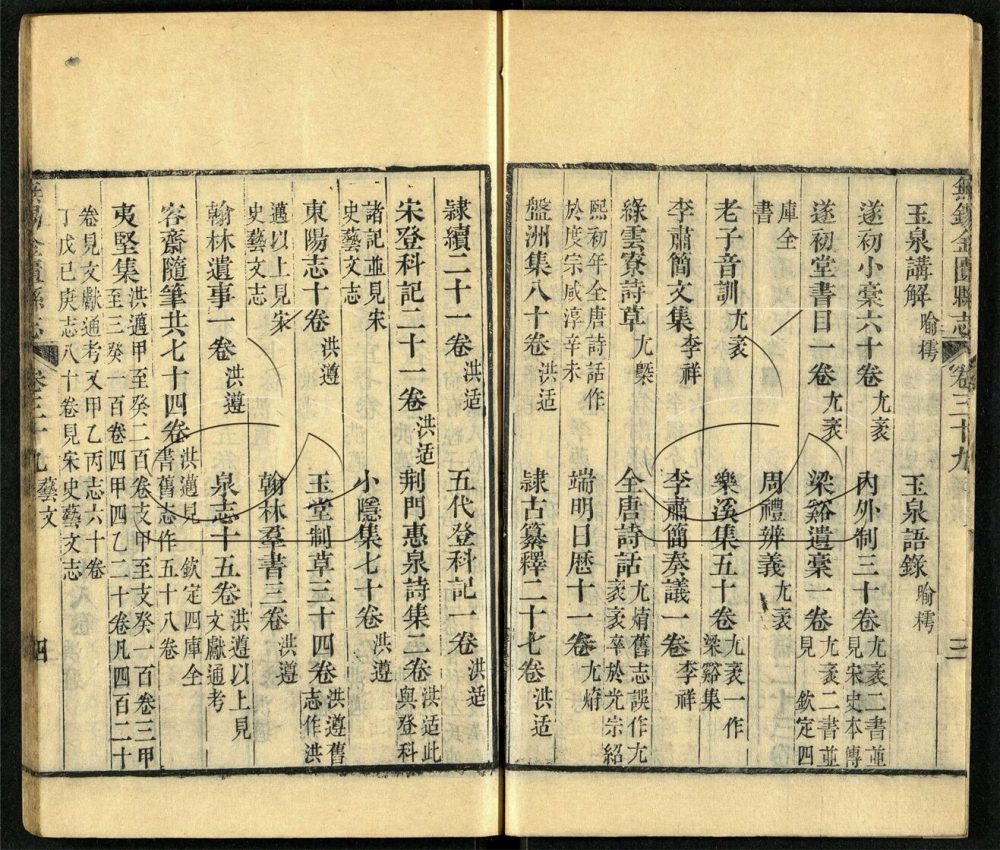 無錫金匱縣志 卷三十九 三
玉泉講解 喻樗 玉泉語錄 喻樗
遂初小稾六十卷 尤袤 內外制三十卷 尤袤二書並見宋史本傳
遂初堂書目一卷 尤袤 梁谿遺稾一卷 尤袤二書並見 欽定四
庫全書 周禮辨義 尤袤
老子音訓 尤袤 樂溪集五十卷 尤袤一作梁谿集
李肅簡文集 李祥 李肅簡奏議一卷 李祥
綠雲寮詩草 尤槩 全唐詩話 尤焴舊志誤作尤袤袤卒於光宗紹
熙初年全唐詩話作於度宗咸淳辛未 端明日歷十一卷 尤焴
盤洲集八十卷 洪适 隸古纂釋二十七卷 洪适
隸續二十一卷 洪适 五代登科記一卷 洪适
宋登科記二十一卷 洪适 荆門惠泉詩集二卷 洪适此與登科
諸記並見宋史藝文志 小隱集七十卷 洪遵
東陽志十卷 洪遵 玉堂制草三十四卷 洪遵舊志作洪
邁以上見宋史藝文志 翰林羣書三卷 洪遵
翰林遺事一卷 洪遵 泉志十五卷 洪遵以上見文獻通考
容齋隨筆共七十四卷 洪邁見 欽定四庫全書舊志作五十八卷
夷堅集 洪邁甲至癸二百卷支甲至支癸一百卷三甲至三癸一百卷四甲四乙二十卷凡四百二十
卷見文獻通考又甲乙丙志六十卷丁戊己庚志八十卷見宋史藝文志
無錫金匱縣志 卷三十九 藝文 四